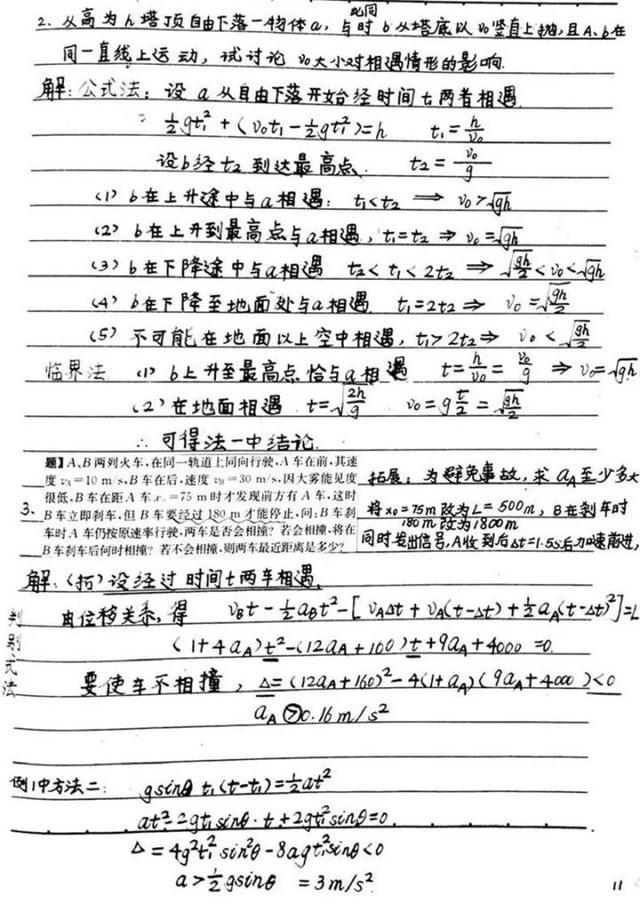 2. 从高为h塔顶自由下落一物体a,与此同时b从塔底以v₀竖直上抛,且A、b在
同一直线上运动,试讨论v₀大小对相遇情形的影响.
解:公式法:设a从自由下落开始经时间t₁两者相遇
∵ ½gt₁²+(v₀t₁-½gt₁²)=h t₁=h/v₀
设b经t₂到达最高点. t₂=v₀/g
(1) b在上升途中与a相遇: t₁<t₂ ⟹ v₀>√gh
(2) b在上升到最高点与a相遇, t₁=t₂ ⇒ v₀=√gh
(3) b在下降途中与a相遇 t₂<t₁<2t₂ ⇒ √(gh/2)<v₀<√gh
(4) b在下降至地面处与a相遇 t₁=2t₂ ⇒ v₀=√(gh/2)
(5) 不可能在地面以上空中相遇, t₁>2t₂ ⇒ v₀<√(gh/2)
临界法 (1) b上升至最高点恰与a相遇 t=h/v₀=v₀/g ⇒ v₀=√gh.
(2) 在地面相遇 t=√(2h/g) v₀=g t/2=√(gh/2)
∴ 可得法一中结论.
3.
题】A、B两列火车,在同一轨道上同向行驶,A车在前,其速
度v_A=10 m/s,B车在后,速度v_B=30 m/s,因大雾能见度
很低,B车在距A车x₀=75 m时才发现前方有A车,这时
B车立即刹车,但B车要经过180 m才能停止,问:B车刹
车时A车仍按原速率行驶,两车是否会相撞?若会相撞,将在
B车刹车后何时相撞?若不会相撞,则两车最近距离是多少?
拓展:为避免事故,求a_A至少多大
将x₀=75m改为L=500m,B在刹车时
180m改为1800m
同时发出信号,A收到后Δt=1.5s后加速前进,
解:(拓)设经过时间t两车相遇.
判别式法
由位移关系,得 v_Bt-½a_Bt²-[v_AΔt+v_A(t-Δt)+½a_A(t-Δt)²]=L
(1+4a_A)t²-(12a_A+160)t+9a_A+4000=0.
要使车不相撞,Δ=(12a_A+160)²-4(1+a_A)(9a_A+4000)<0
a_A>0.16m/s²
例1中方法二: gsinθ t₁(t-t₁)=½at²
at²-2gt₁sinθ·t+2gt₁²sinθ=0
Δ=4g²t₁²sin²θ-8agt₁²sinθ<0
a>½gsinθ =3m/s².
11